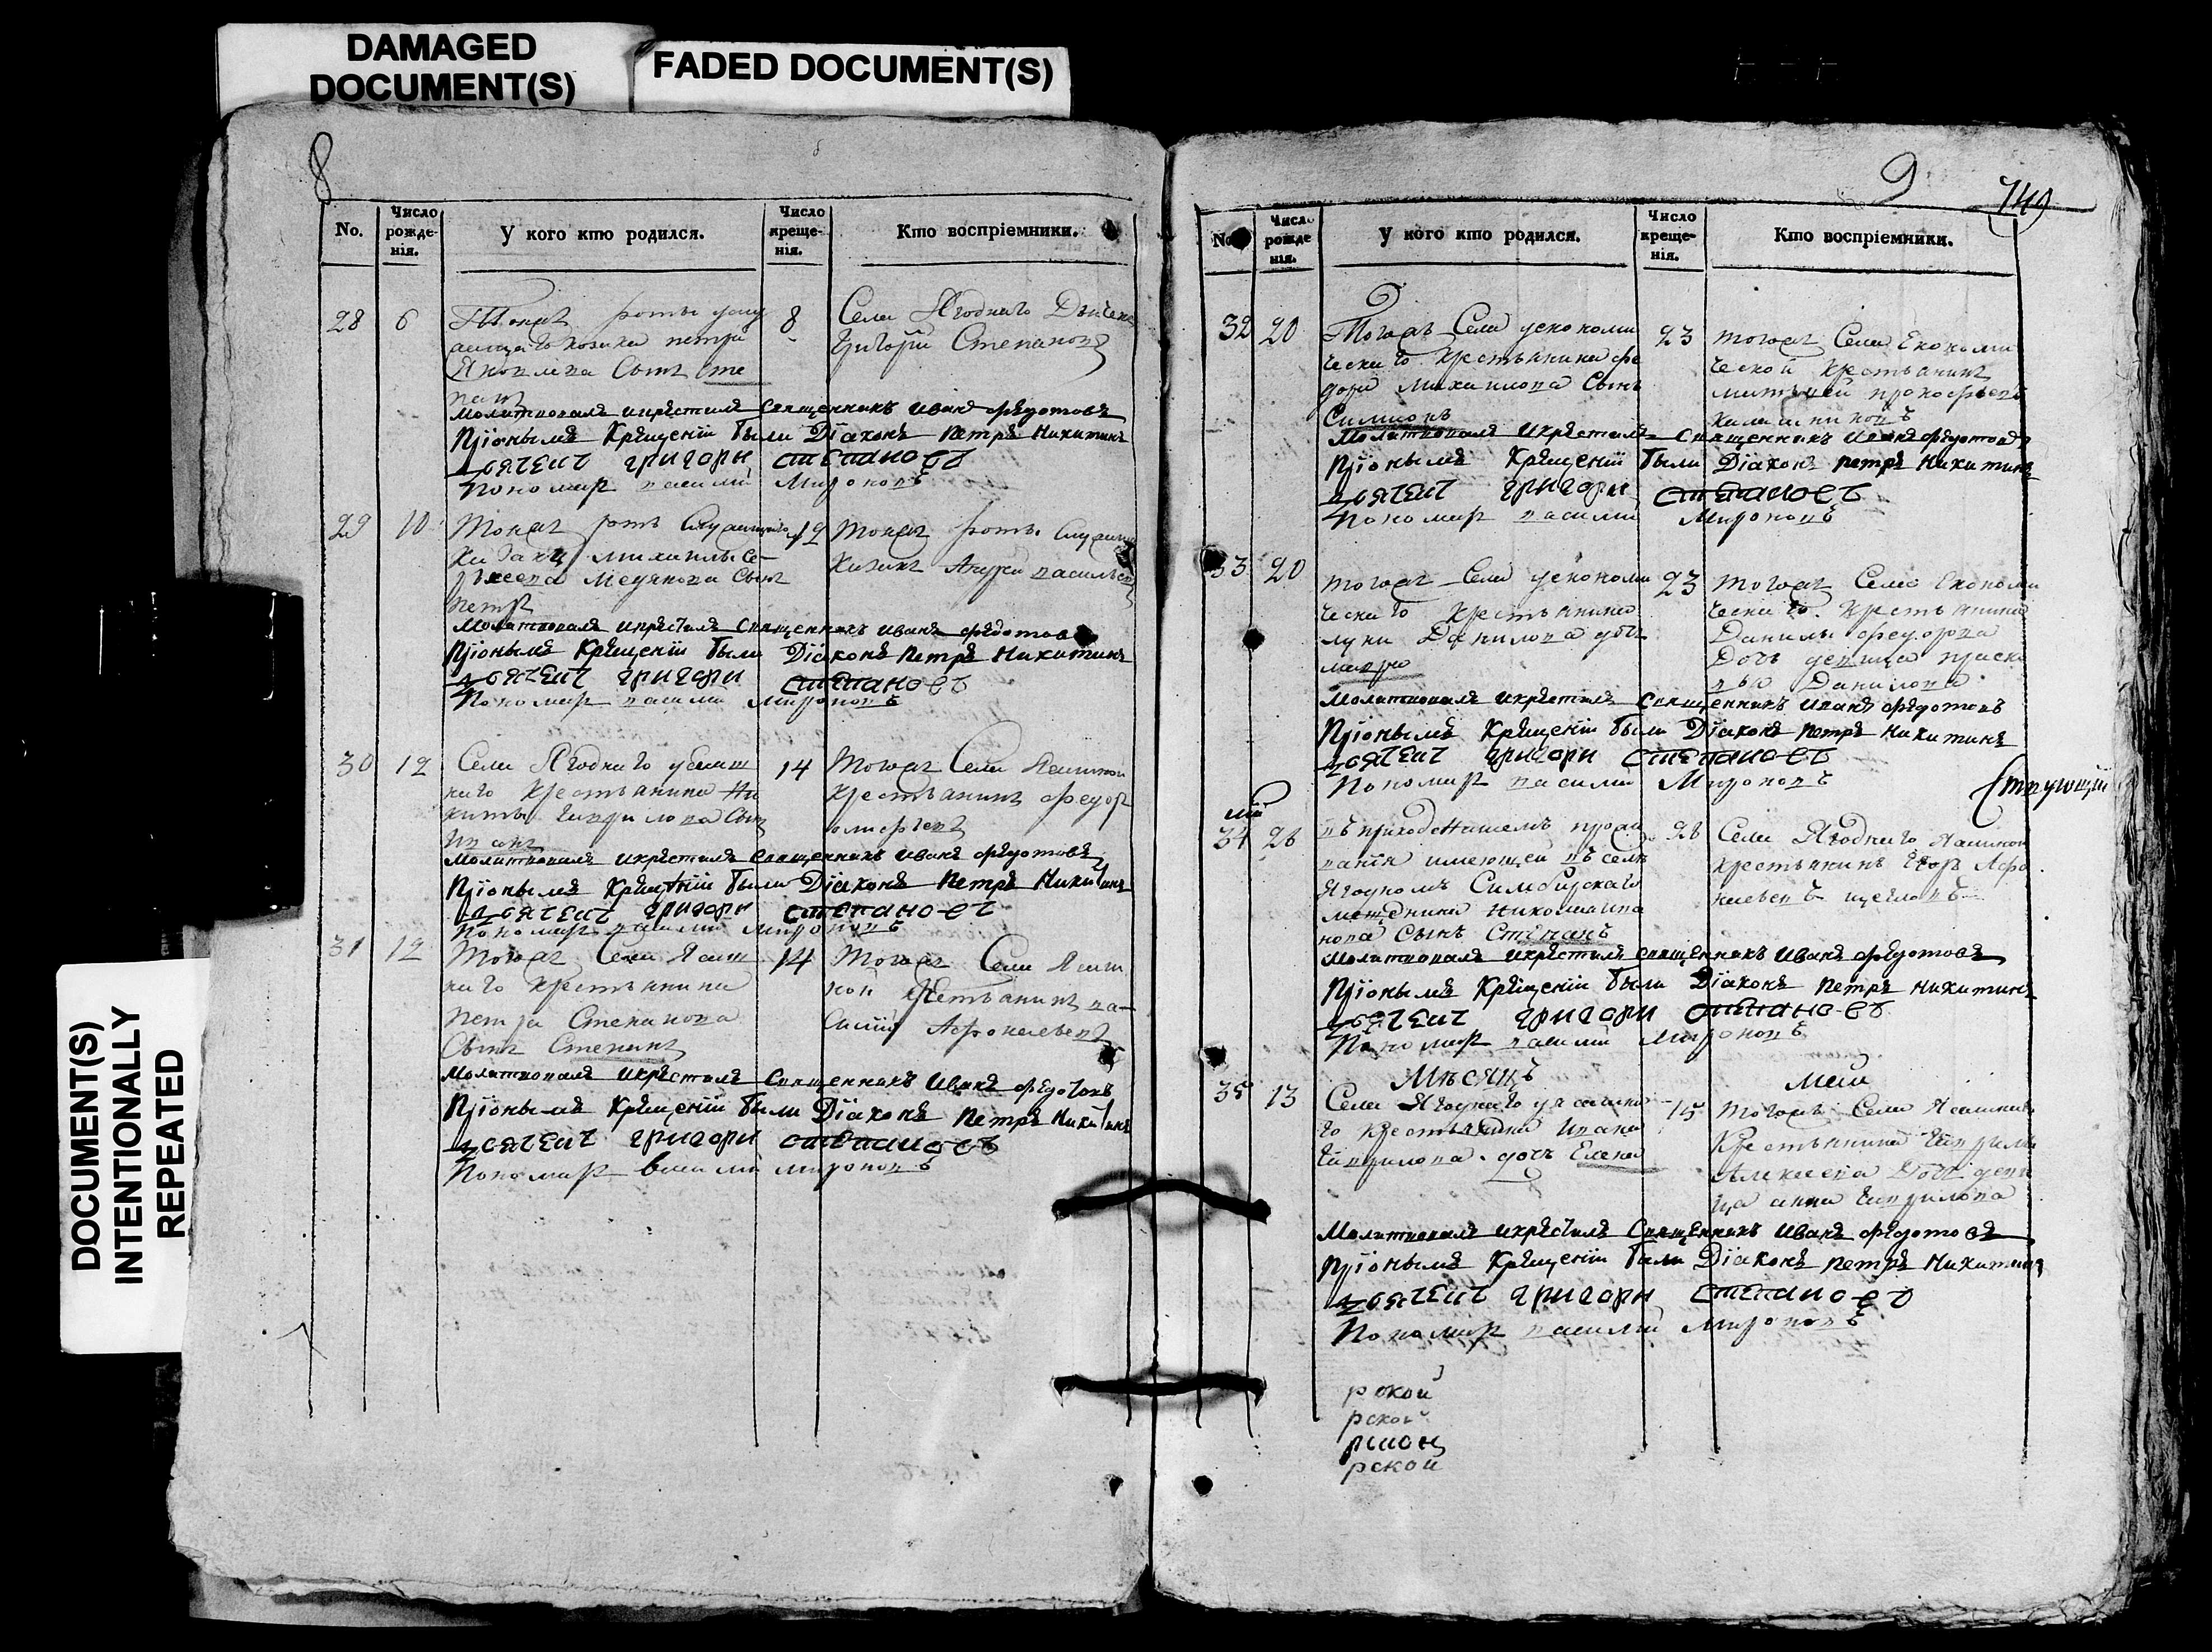 DAMAGED
DOCUMENT(S)
FADED DOCUMENT(S)
DOCUMENT(S)
INTENTIONALLY
REPEATED
8
No.
Число рожденія.
У кого кто родился.
Число крещенія.
Кто воспріемники.
28 6 8
Села Ягоднаго Дьячекъ
Григорій Степановъ
козака петра
Яковлева Сынъ Сте
панъ
Молитвовалъ икрѣстилъ Священникъ Иванъ Фѣдотовъ
Пріономъ Крѣщеніи были Діаконъ Петръ Никитинъ
дьячеиг григори степановъ
Пономар василий Мироновъ
29 10 12
Тоежъ роты
михаилы Се
Сынъ
петръ
Тоежъ роты
Андрей васильевъ
Молитвовалъ икрѣстилъ Священникъ Иванъ Фѣдотовъ
Пріономъ Крѣщеніи были Діаконъ Петръ Никитинъ
дьячеиг григори степановъ
Пономар василий Мироновъ
30 12 14
Села Ягоднаго
наго крестьянина Ни
киты Гаврилова Сынъ
Иванъ
Тогожъ Села
крестьянинъ Федор
Молитвовалъ икрѣстилъ Священникъ Иванъ Фѣдотовъ
Пріономъ Крѣщеніи были Діаконъ Петръ Никитинъ
дьячеиг григори степановъ
Пономар василий Мироновъ
31 12 14
Тогожъ Села Ясаш
наго крестьянина
Петра Степанова
Сынъ Степанъ
Тогожъ Села Ясаш
ной крестьянинъ ва-
силий Афонасьевъ
Молитвовалъ икрѣстилъ Священникъ Иванъ Фѣдотовъ
Пріономъ Крѣщеніи были Діаконъ Петръ Никитинъ
дьячеиг григори степановъ
Пономар василий мироновъ
9
749
No.
Число рожденія.
У кого кто родился.
Число крещенія.
Кто воспріемники.
32 20 23
Тогожъ Села уекономи
ческаго крестьянина Фе
дора михаилова Сынъ
Симионъ
тогожъ Села Економи
ческой крестьянинъ
матвей прокофьевъ
Молитвовалъ икрѣстилъ Священникъ Иванъ Фѣдотовъ
Пріономъ Крѣщеніи были Діаконъ петръ Никитинъ
дьячеиг григори степановъ
Пономар василий Мироновъ
33 20 23
тогожъ Села уекономи
ческаго крестьянина
луки Данилова дочь
марфа
тогожъ Села Економи
ческаго крестьянина
Данилы Федорова
Дочь девица праско
вья Данилова
Молитвовалъ икрѣстилъ Священникъ Иванъ Фѣдотовъ
Пріономъ Крѣщеніи были Діаконъ петръ Никитинъ
дьячеиг григори степановъ
Пономар василий Мироновъ
34 28 28
въ приходе нашемъ
имеющей въ селе
Ягодномъ Симбирскаго
мещенина
нова Сынъ Степанъ
Села Ягоднаго Ясашной
крестьянинъ Егоръ Афо
насьевъ щегловъ
Молитвовалъ икрѣстилъ священникъ Иванъ Фѣдотовъ
Пріономъ Крѣщеніи были Діаконъ Петръ Никитинъ
дьячеиг григори степановъ
Пономар василий Мироновъ
Мѣсяцъ маи
35 13 15
Села Ягоднаго уясашна
го крестьянина Ивана
Гаврилова дочь Елена
Тогожъ Села Ясашнаго
Крестьянина Гаврилы
Алексеева Дочь деви
ца анна Гаврилова
Молитвовалъ икрѣстилъ Священникъ Иванъ Фѣдотовъ
Пріономъ Крѣщеніи были Діаконъ петръ Никитинъ
дьячеиг григори степановъ
Пономар василий Мироновъ
рской
рской
рской